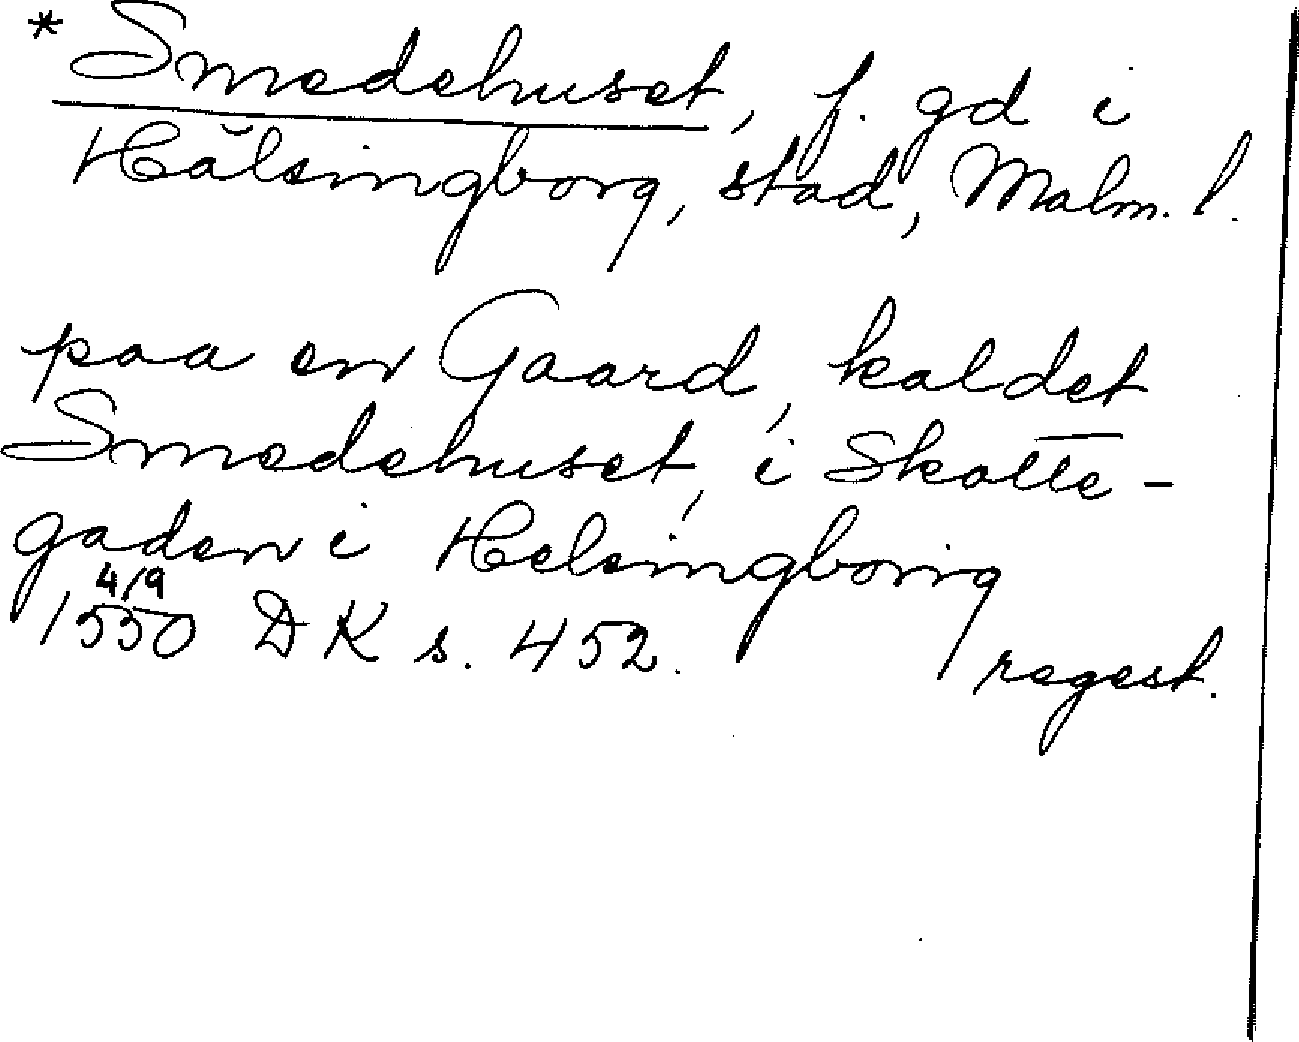 * Smedehuset, f. gd i
Hälsingborg, stad, Malm. l.
paa en Gaard, kaldet
Smedehuset, i Skotte-
gaden i Helsingborg
4/9
1550 DK s. 452.
regest.